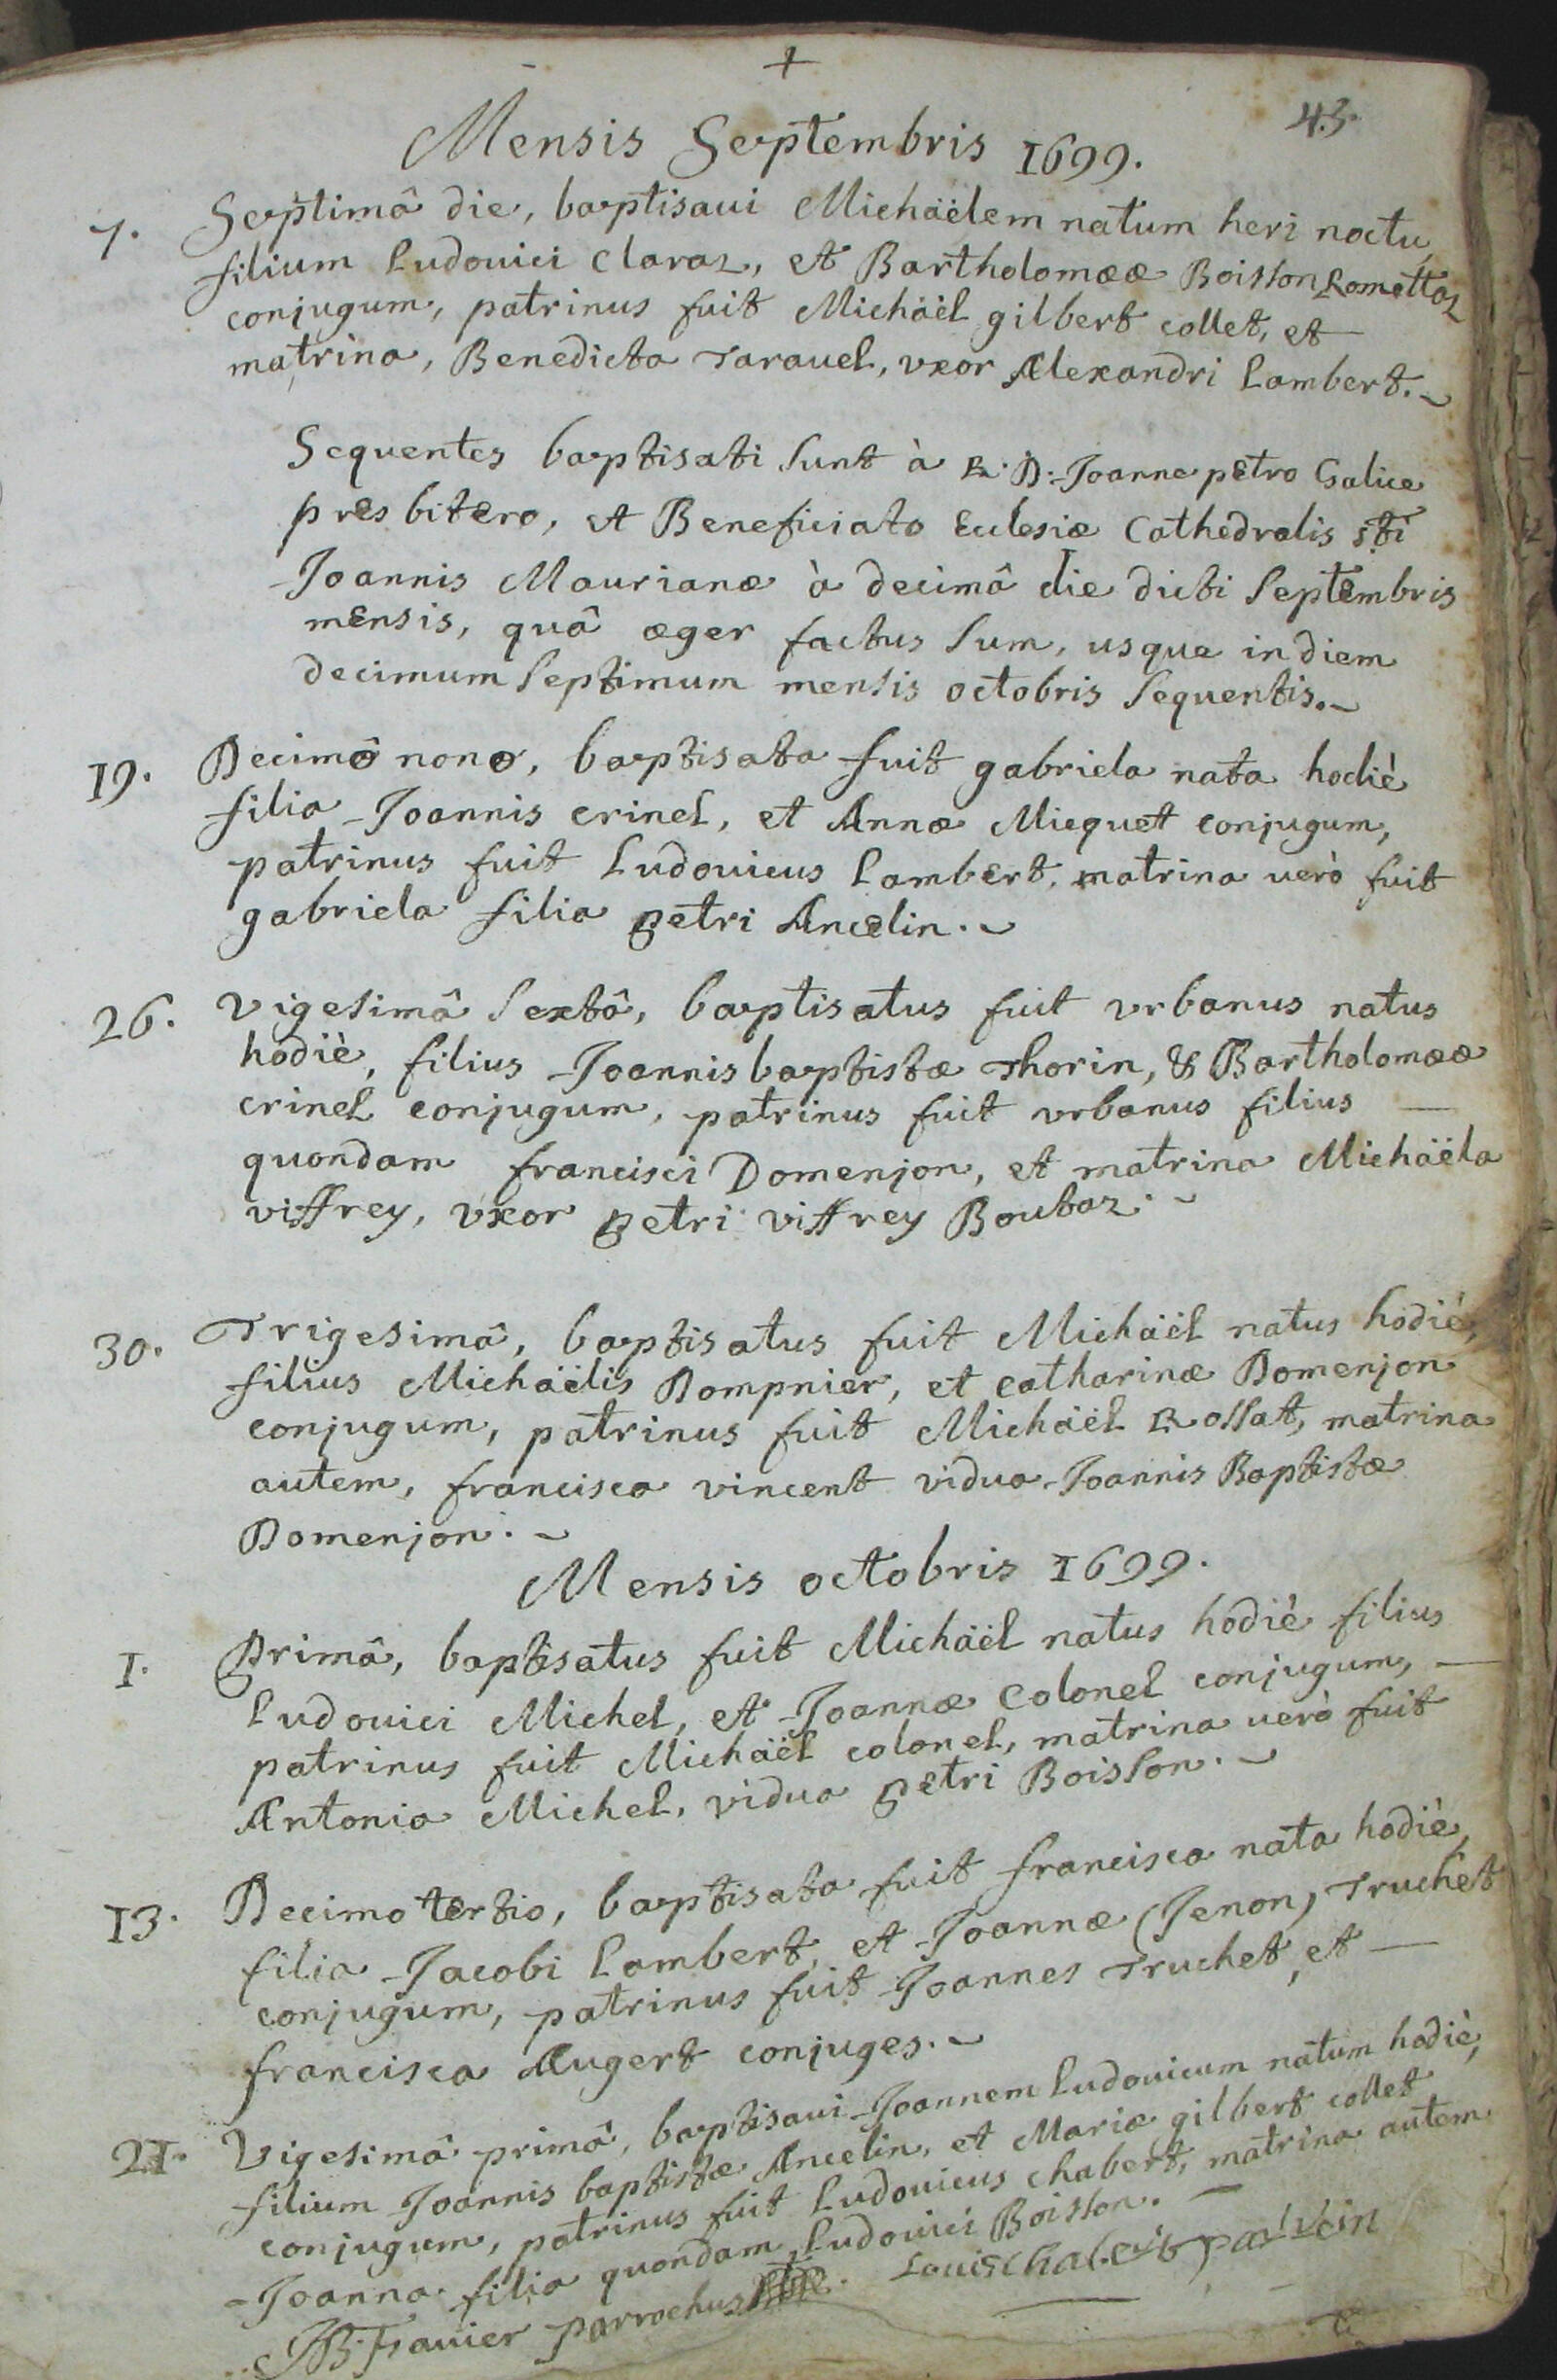 +
43.
Mensis Septembris 1699.
7. Septimâ die, baptisaui Michäëlem natum heri noctu,
filium Ludouici Claraz, et Bartholomææ Boisson Lomettaz
conjugum, patrinus fuit Michäël gilbert collet, et
matrina, Benedicta Tarauel, vxor Alexandri Lambert.
Sequentes baptisati sunt à R. D. Joanne petro Galice
presbitero, et Beneficiato Ecclesiæ Cathedralis sti
Joannis Maurianæ à decimâ die dicti Septembris
mensis, quâ æger factus sum, usque in diem
decimum septimum mensis octobris sequentis.
19. Decimô nono, baptisata fuit gabriela nata hodiè
filia Joannis crinel, et Annæ Micquet conjugum,
patrinus fuit Ludouicus Lambert, matrina uerò fuit
gabriela filia petri Ancelin.
26. Vigesimâ sextâ, baptisatus fuit vrbanus natus
hodiè, filius Joannis baptistæ Thorin, & Bartholomææ
crinel conjugum, patrinus fuit vrbanus filius
quondam francisci Domenjon, et matrina Michäëla
viffrey, vxor petri viffrey Boubaz.
30. Trigesimâ, baptisatus fuit Michäël natus hodiè,
filius Michäëlis Dompnier, et catharinæ Domenjon
conjugum, patrinus fuit Michäël Rossat, matrina
autem, francisca vincent vidua Joannis Baptistæ
Domenjon.
Mensis octobris 1699.
1. Primâ, baptisatus fuit Michäël natus hodiè filius
Ludouici Michel, et Joannæ Colonel conjugum,
patrinus fuit Michäël colonel, matrina uerò fuit
Antonia Michel, vidua petri Boisson.
13. Decimo tertio, baptisata fuit francisca nata hodiè,
filia Jacobi Lambert, et Joannæ (Jenon) Truchet
conjugum, patrinus fuit Joannes Truchet, et
francisca Augert conjuges.
21. Vigesimâ primâ, baptisaui Joannem Ludouicum natum hodiè,
filium Joannis baptistæ Ancelin, et Mariæ gilbert collet
conjugum, patrinus fuit Ludouicus chabert, matrina autem
Joanna filia quondam Ludouici Boisson.
JB. Frauier parrochus Louis chabert parrein